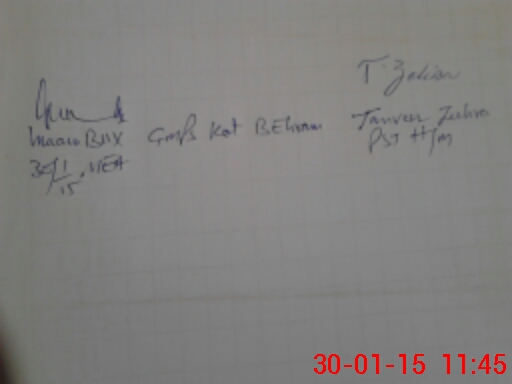 T. Zahira
BUX GMPS Kot BEHram
Tanveer Zahra
30/1/15. MEA
PST H/M
30-01-15 11:45